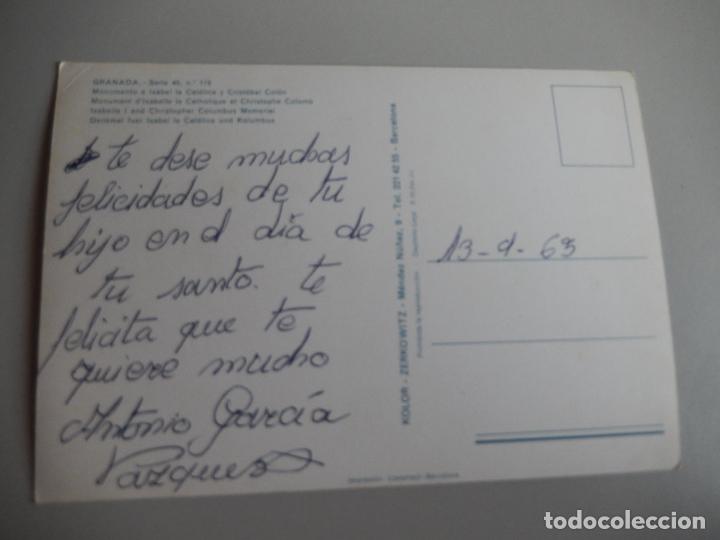 GRANADA.- Serie 40, n.º
Monumento a Isabel la Católica y Cristóbal Colón
Monument d'Isabelle la Catholique et Christophe Colomb
Isabelle I and Christopher Columbus Memorial
Denkmal fuer Isabel la Católica und Kolumbus
te dese muchas
felicidades de tu
hijo en el día de
tu santo. te
felicita que te
quiere mucho
Antonio García
Vazquez
KOLOR - ZERKOWITZ - Méndez Núñez, 9 - Tel. 221 42 55 - Barcelona
Prohibida la reproducción Depósito Legal
13-9-69
Barcelona
todocoleccion